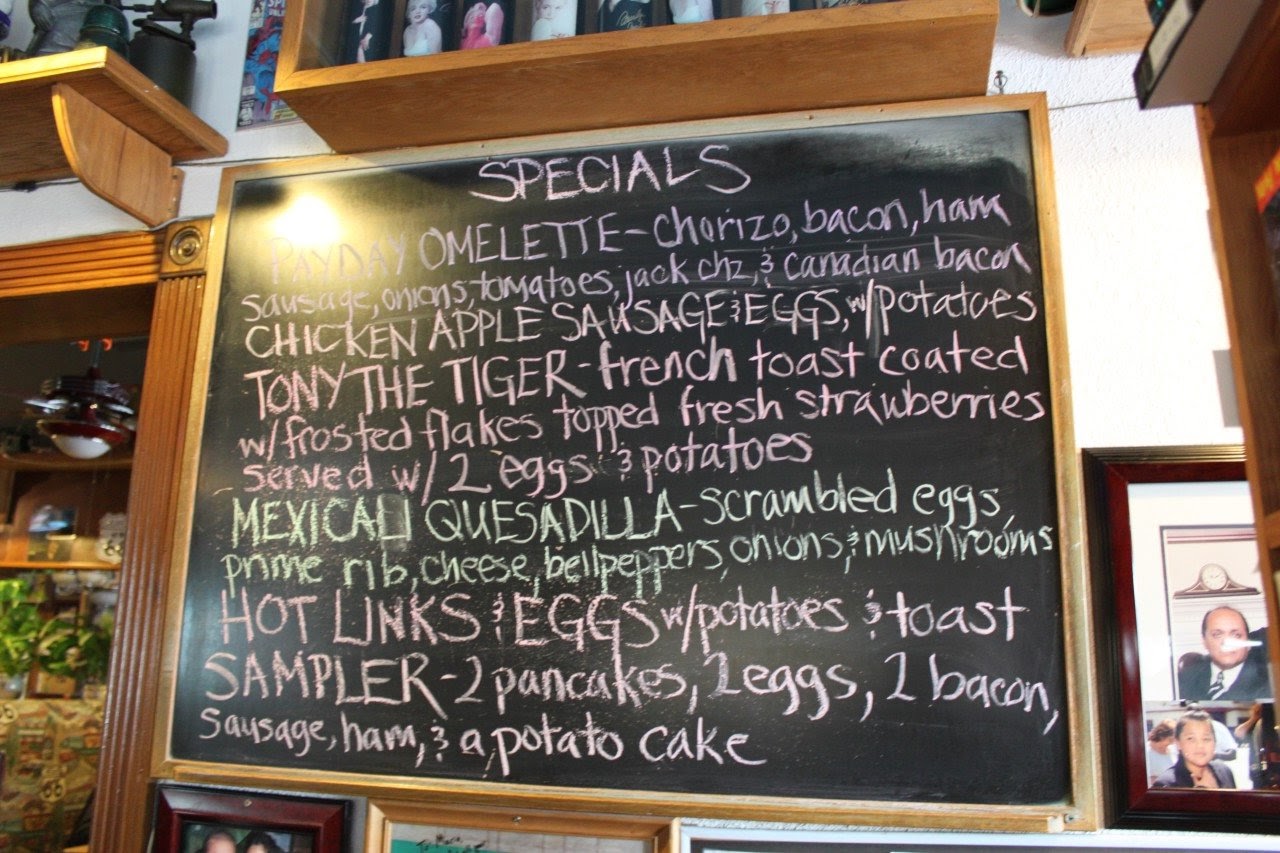 SPECIALS
PAYDAY OMELETTE-chorizo, bacon, ham
sausage, onions, tomatoes, jack chz, & canadian bacon
CHICKEN APPLE SAUSAGE & EGGS, w/potatoes
TONY THE TIGER-french toast coated
w/frosted flakes topped fresh strawberries
served w/ 2 eggs & potatoes
MEXICALI QUESADILLA-scrambled eggs,
prime rib, cheese, bellpeppers, onions, & mushrooms
HOT LINKS & EGGS w/potatoes & toast
SAMPLER-2 pancakes, 2 eggs, 2 bacon,
sausage, ham, & a potato cake